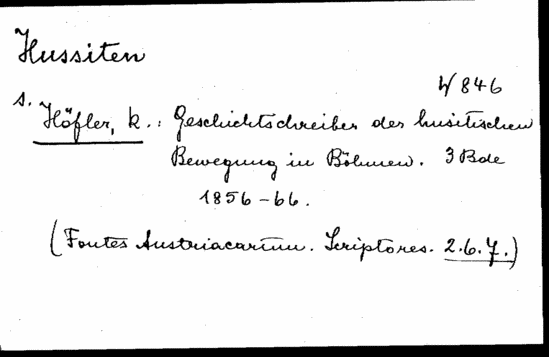 Hussiten
W 846
s. Höfler, K.: Geschichtschreiber der husitischen
Bewegung in Böhmen. 3 Bde
1856-66.
(Fontes Austriacarum. Scriptores. 2.6.7.)